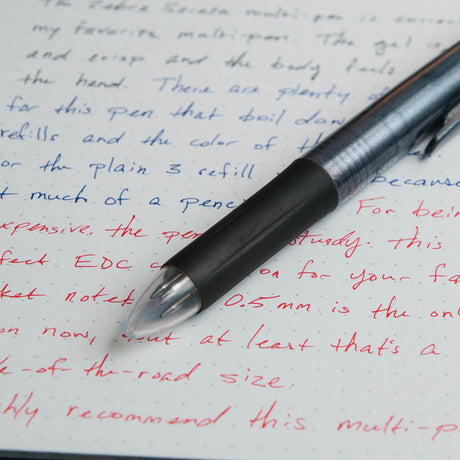 The Zebra Sarasa multi-pen is
my favorite multi-pen. The gel
and crisp and the body feels
the hand. There are plenty
for this pen that boil down
refills and the color of the
or the plain 3 refill because
much of a pencil For being
expensive, the pen study. this
EDC on for your
notet 0.5mm is the
on now, but at least that's a
-of-the-road size.
recommend this multi-p